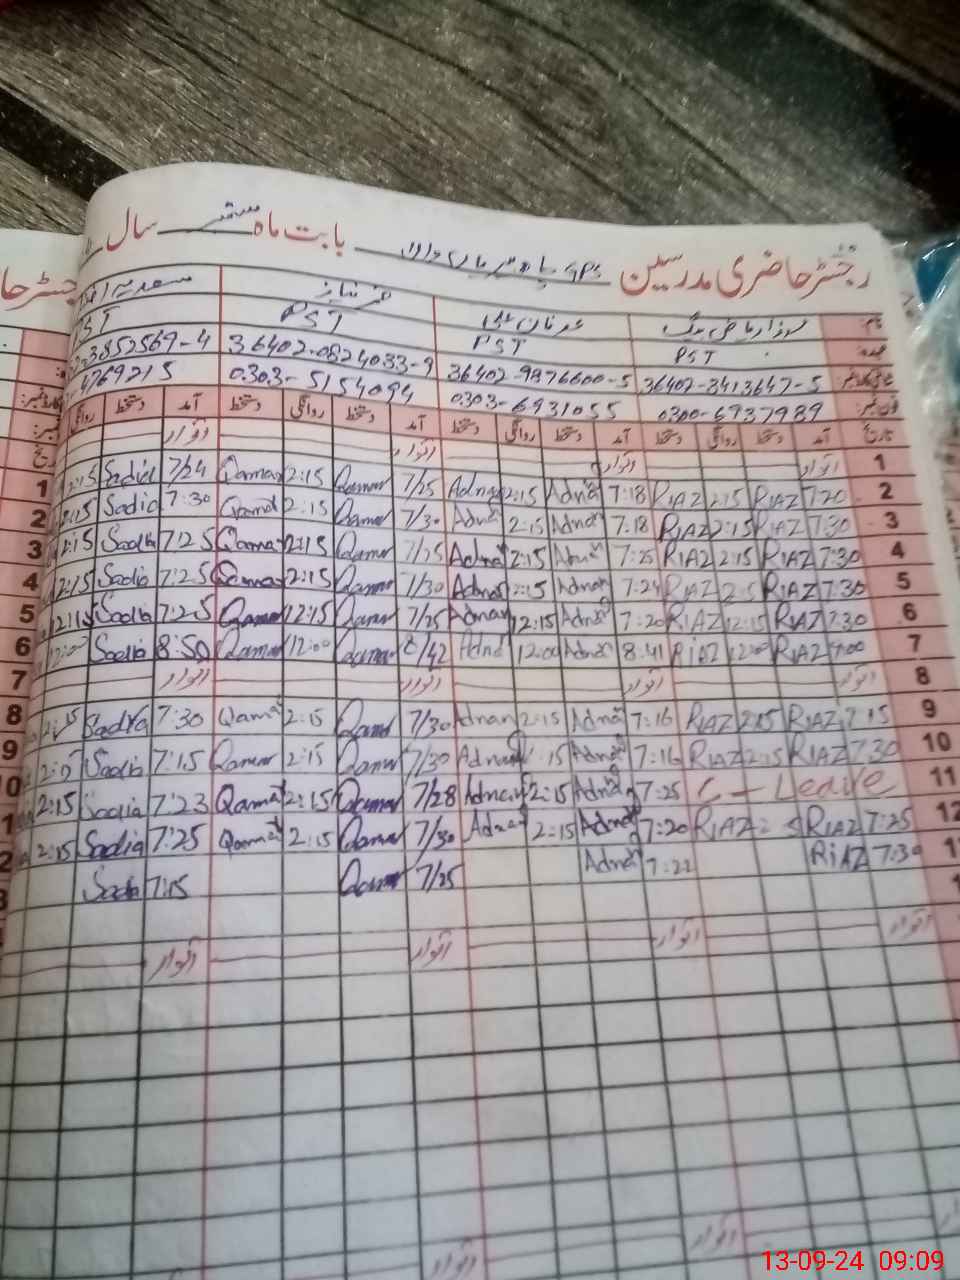 رجسٹر حاضری مدرسین GPS بابت ماه ستمبر سال
نام:
PST PST PST
36402-3413647-5 36402-9876600-5 36402-0824033-9 3852569-4
0300-6937989 0303-6931055 0303-5154094 4769215
تاریخ آمد دستخط روانگی دستخط آمد دستخط روانگی دستخط آمد دستخط روانگی دستخط آمد دستخط روانگی
1 اتوار اتوار اتوار اتوار
2:15 Sadia 7/24 Qamar 2:15 Qamar 7/25 Adnan 2:15 Adnan 7:18 RIAZ 2:15 RIAZ 7:20 2
2:15 Sadia 7:30 Qamar 2:15 Qamar 7/30 Adnan 2:15 Adnan 7:18 RIAZ 2:15 RIAZ 7:30 3
2:15 Sadia 7:25 Qamar 2:15 Qamar 7/25 Adnan 2:15 Adnan 7:25 RIAZ 2:15 RIAZ 7:30 4
2:15 Sadia 7:25 Qamar 2:15 Qamar 7/30 Adnan 2:15 Adnan 7:24 RIAZ 2:15 RIAZ 7:30 5
12:15 Sadia 7:25 Qamar 12:15 Qamar 7/25 Adnan 12:15 Adnan 7:20 RIAZ 12:15 RIAZ 7:30 6
12:00 Sadia 8:50 Qamar 12:00 Qamar 8/42 Adnan 12:00 Adnan 8:41 RIAZ 12:00 RIAZ 7:00 7
8 اتوار اتوار اتوار اتوار
2:15 Sadia 7:30 Qamar 2:15 Qamar 7/30 Adnan 2:15 Adnan 7:16 RIAZ 2:15 RIAZ 7:15 9
Sadia 7:15 Qamar 2:15 Qamar 7/30 Adnan 2:15 Adnan 7:16 RIAZ 2:15 RIAZ 7:30 10
2:15 Sadia 7:23 Qamar 2:15 Qamar 7/28 Adnan 2:15 Adnan 7:25 C - Leave 11
2:15 Sadia 7:25 Qamar 2:15 Qamar 7/30 Adnan 2:15 Adnan 7:20 RIAZ RIAZ 7:25 12
Sadia 7:15 Qamar 7/25 Adnan 7:22 RIAZ 7:30
اتوار اتوار اتوار اتوار
اتوار اتوار
13-09-24 09:09